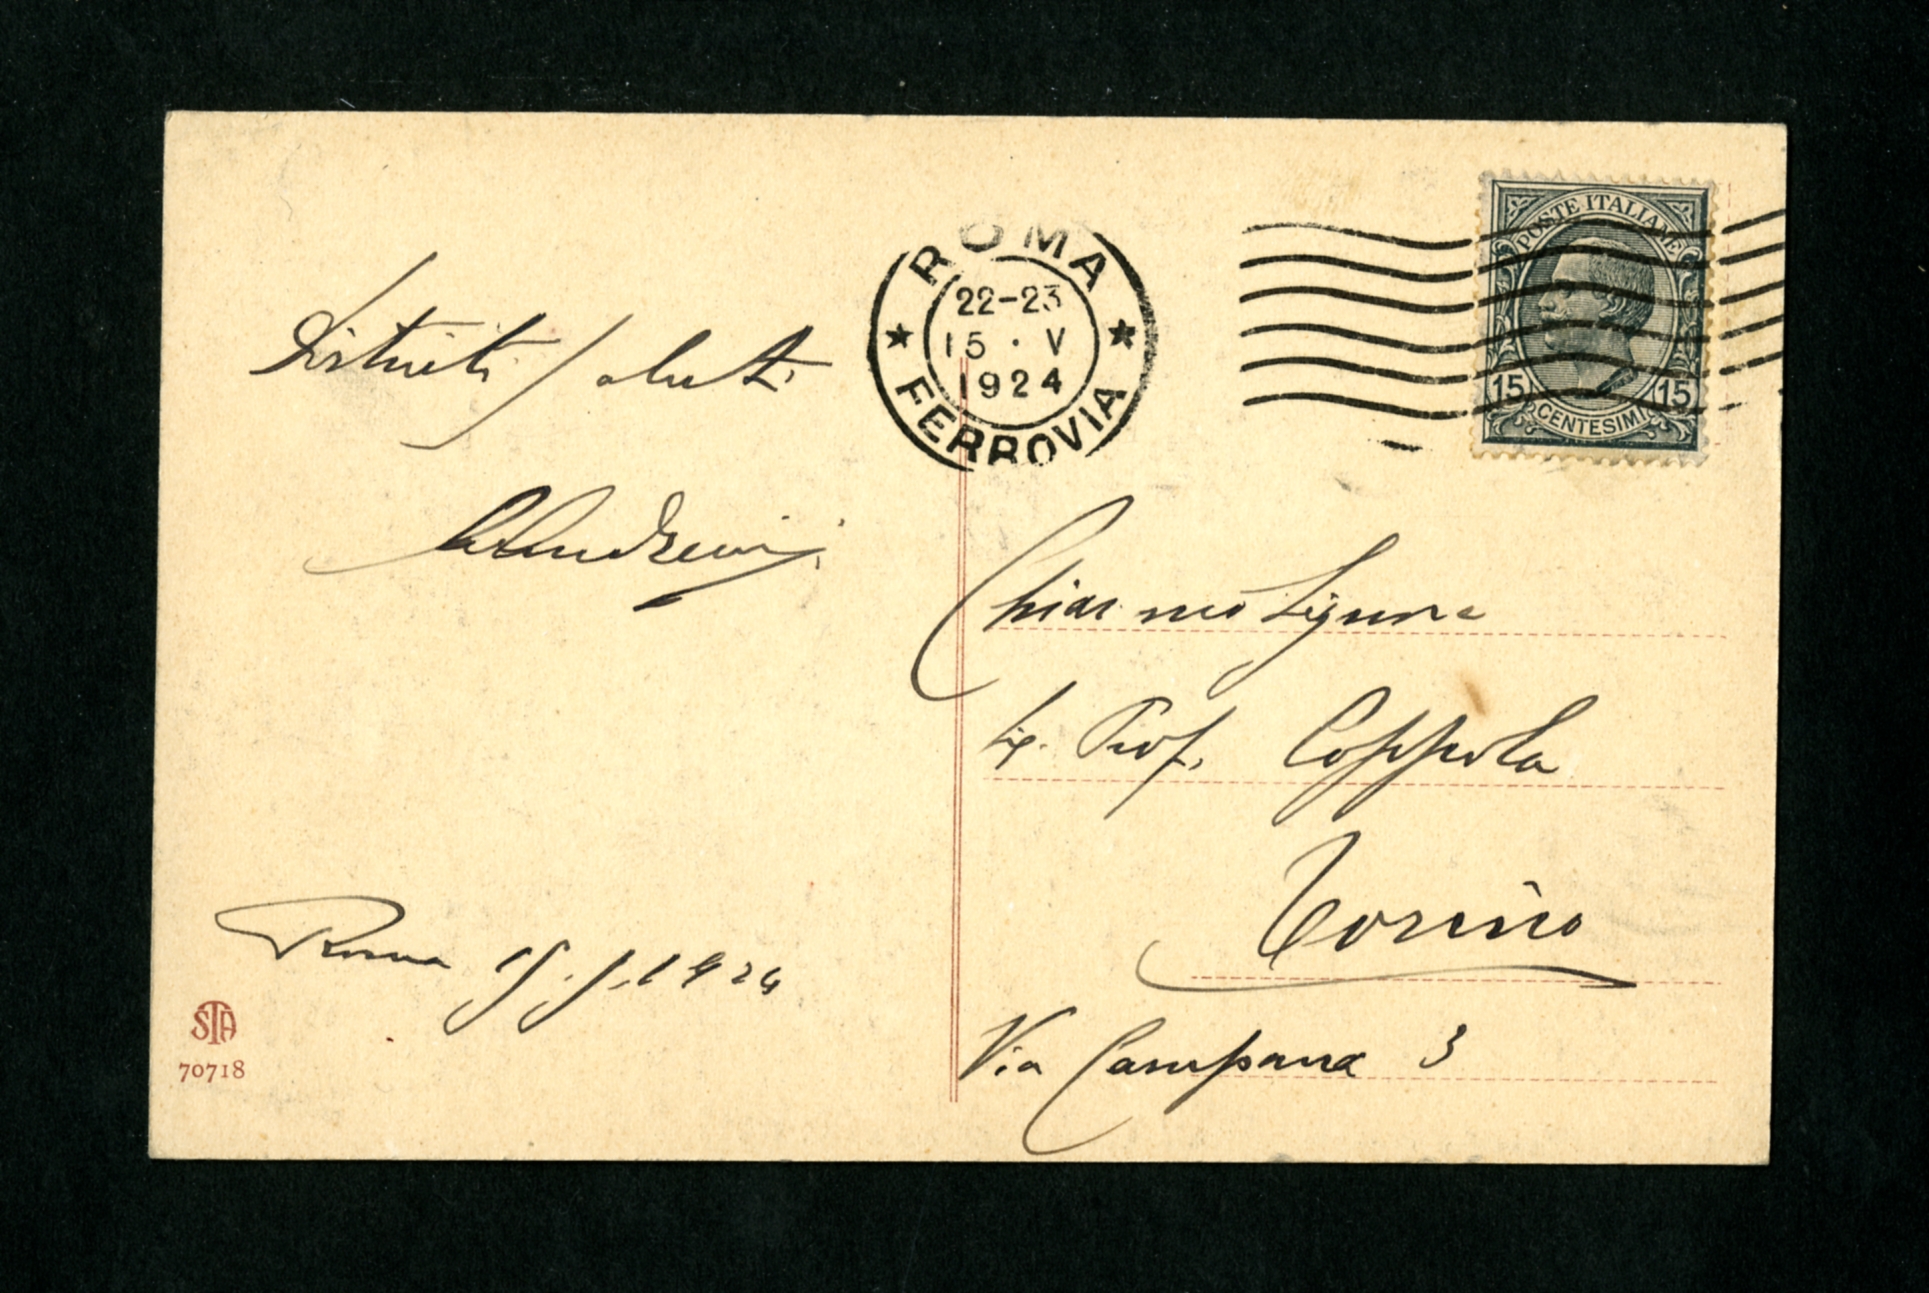 ROMA
22-23
15 · V
1924
FERROVIA
POSTE ITALIANE
15 15
CENTESIMI
Distinti saluti
Chiar.mo Signore
Sig. Prof. Coppola
Torino
Via Campana 3
Roma 15.5.1924
STA
70718